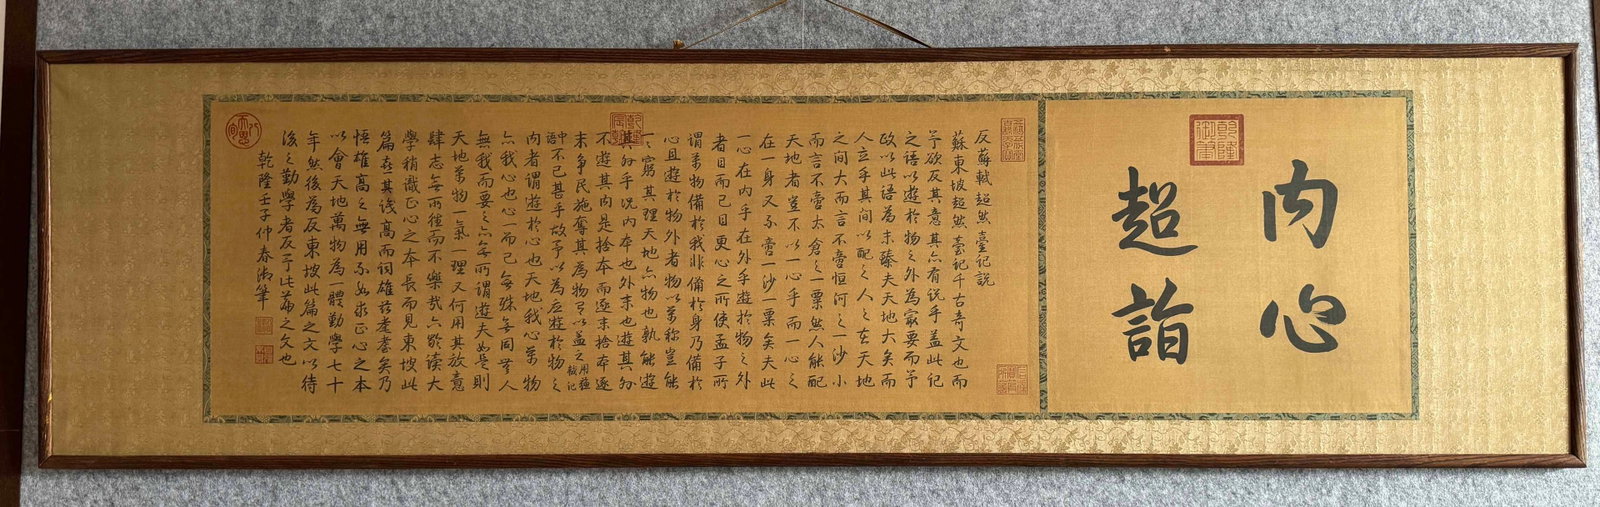 乾隆御筆
内心
超詣
反蘇軾超然臺記說
蘇東坡超然臺記千古奇文也而
予欲反其意其亦有說乎蓋此記
之語以遊於物之外為最要而予
政以此語為未臻夫天地大矣而
人立乎其間以配之人之在天地
之間大而言不啻恒河之一沙小
而言不啻太倉之一粟然人能配
天地者豈不以一心乎而一心之
在一身又不啻一沙一粟矣夫此
一心在內乎在外乎遊於物之外
者目而已目更心之所使孟子所
謂萬物備於我非備於身乃備於
心且遊於物外者物以萬稱豈能
一一窮其理天地亦物也孰能遊
其外乎況內本也外末也遊其外
不遊其內是捨本而逐末捨本逐
末爭民施奪其為物有以蓋之用蘇軾記
中語不已甚乎故予以為應遊於物之
內者謂遊於心也天地我心萬物
亦我心也心一而已無殊無同無人
無我而要之亦無所謂遊夫如是則
天地萬物一氣一理又何用其放意
肆志無所往而不樂哉六齡讀大
學稍識正心之本長而見東坡此
篇喜其談高而詞雄茲耄耋矣乃
悟雄高之無用不如求正心之本
以會天地萬物為一體勤學七十
年然後為反東坡此篇之文以待
後之勤學者反予此篇之文也
乾隆壬子仲春御筆